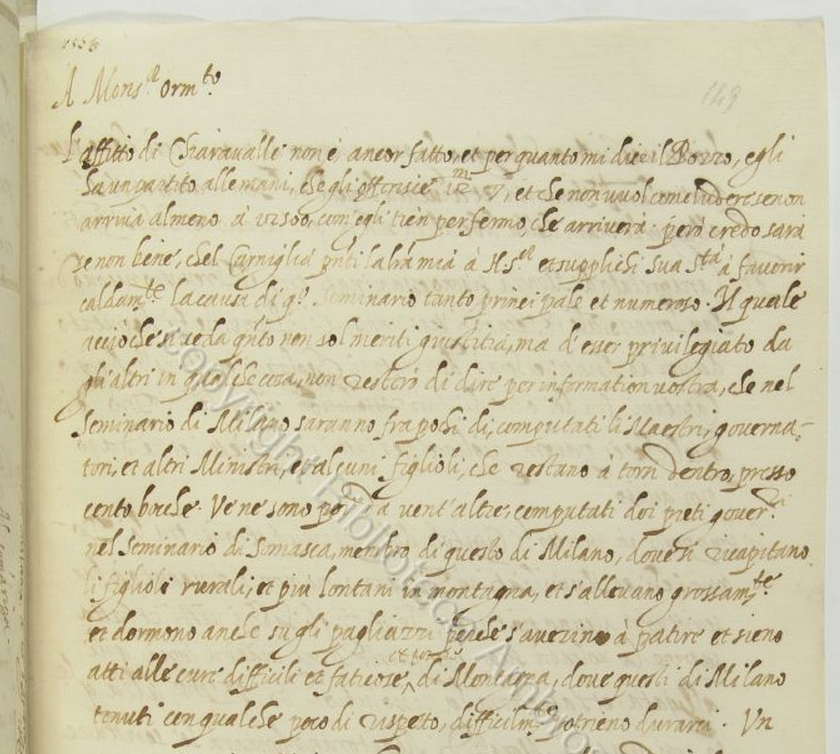 1566
A Mons.r Orm.to
149
L'affitto di Chiaravalle non è ancor fatto, et per quanto mi dice il Bozzo, egli
ha un partito alle mani, che gli offerisce 12 m/ V, et che non vuol concludere se non
arriva almeno à 12500, com'egli tien per fermo, che arriverà: però credo sarà
se non bene, ch'el Carniglia pnti la lra mia à N. S.re et supplichi Sua S.tà à favorir
caldam.te la causa di q.o Seminario tanto principale et numeroso. Il quale
acciò che si veda q.to non sol meriti giustitia, ma d'esser privilegiato da
gl'altri in qualche cosa, non resterò di dire per information vostra, che nel
Seminario di Milano saranno fra pochi dì, computati li Maestri, governa-
tori, et altri Ministri, et alcuni figlioli, che restano à torsi dentro, presso
cento bocche. Ve ne sono poi da vent'altre, computati doi preti gover.ri
nel Seminario di Somasca, membro di questo di Milano, dove si ricapitano
li figlioli rurali, et più lontani in montagna, et s'allevano grossam.te
et dormono anche su gli pagliazzi perche s'avezino à patire et sieno
atti alle cure difficili et faticose, di Montagna, dove questi di Milano
tenuti con qualche poco di rispetto, difficilm.te potrieno durarci. Un
copyright Biblioteca Ambro